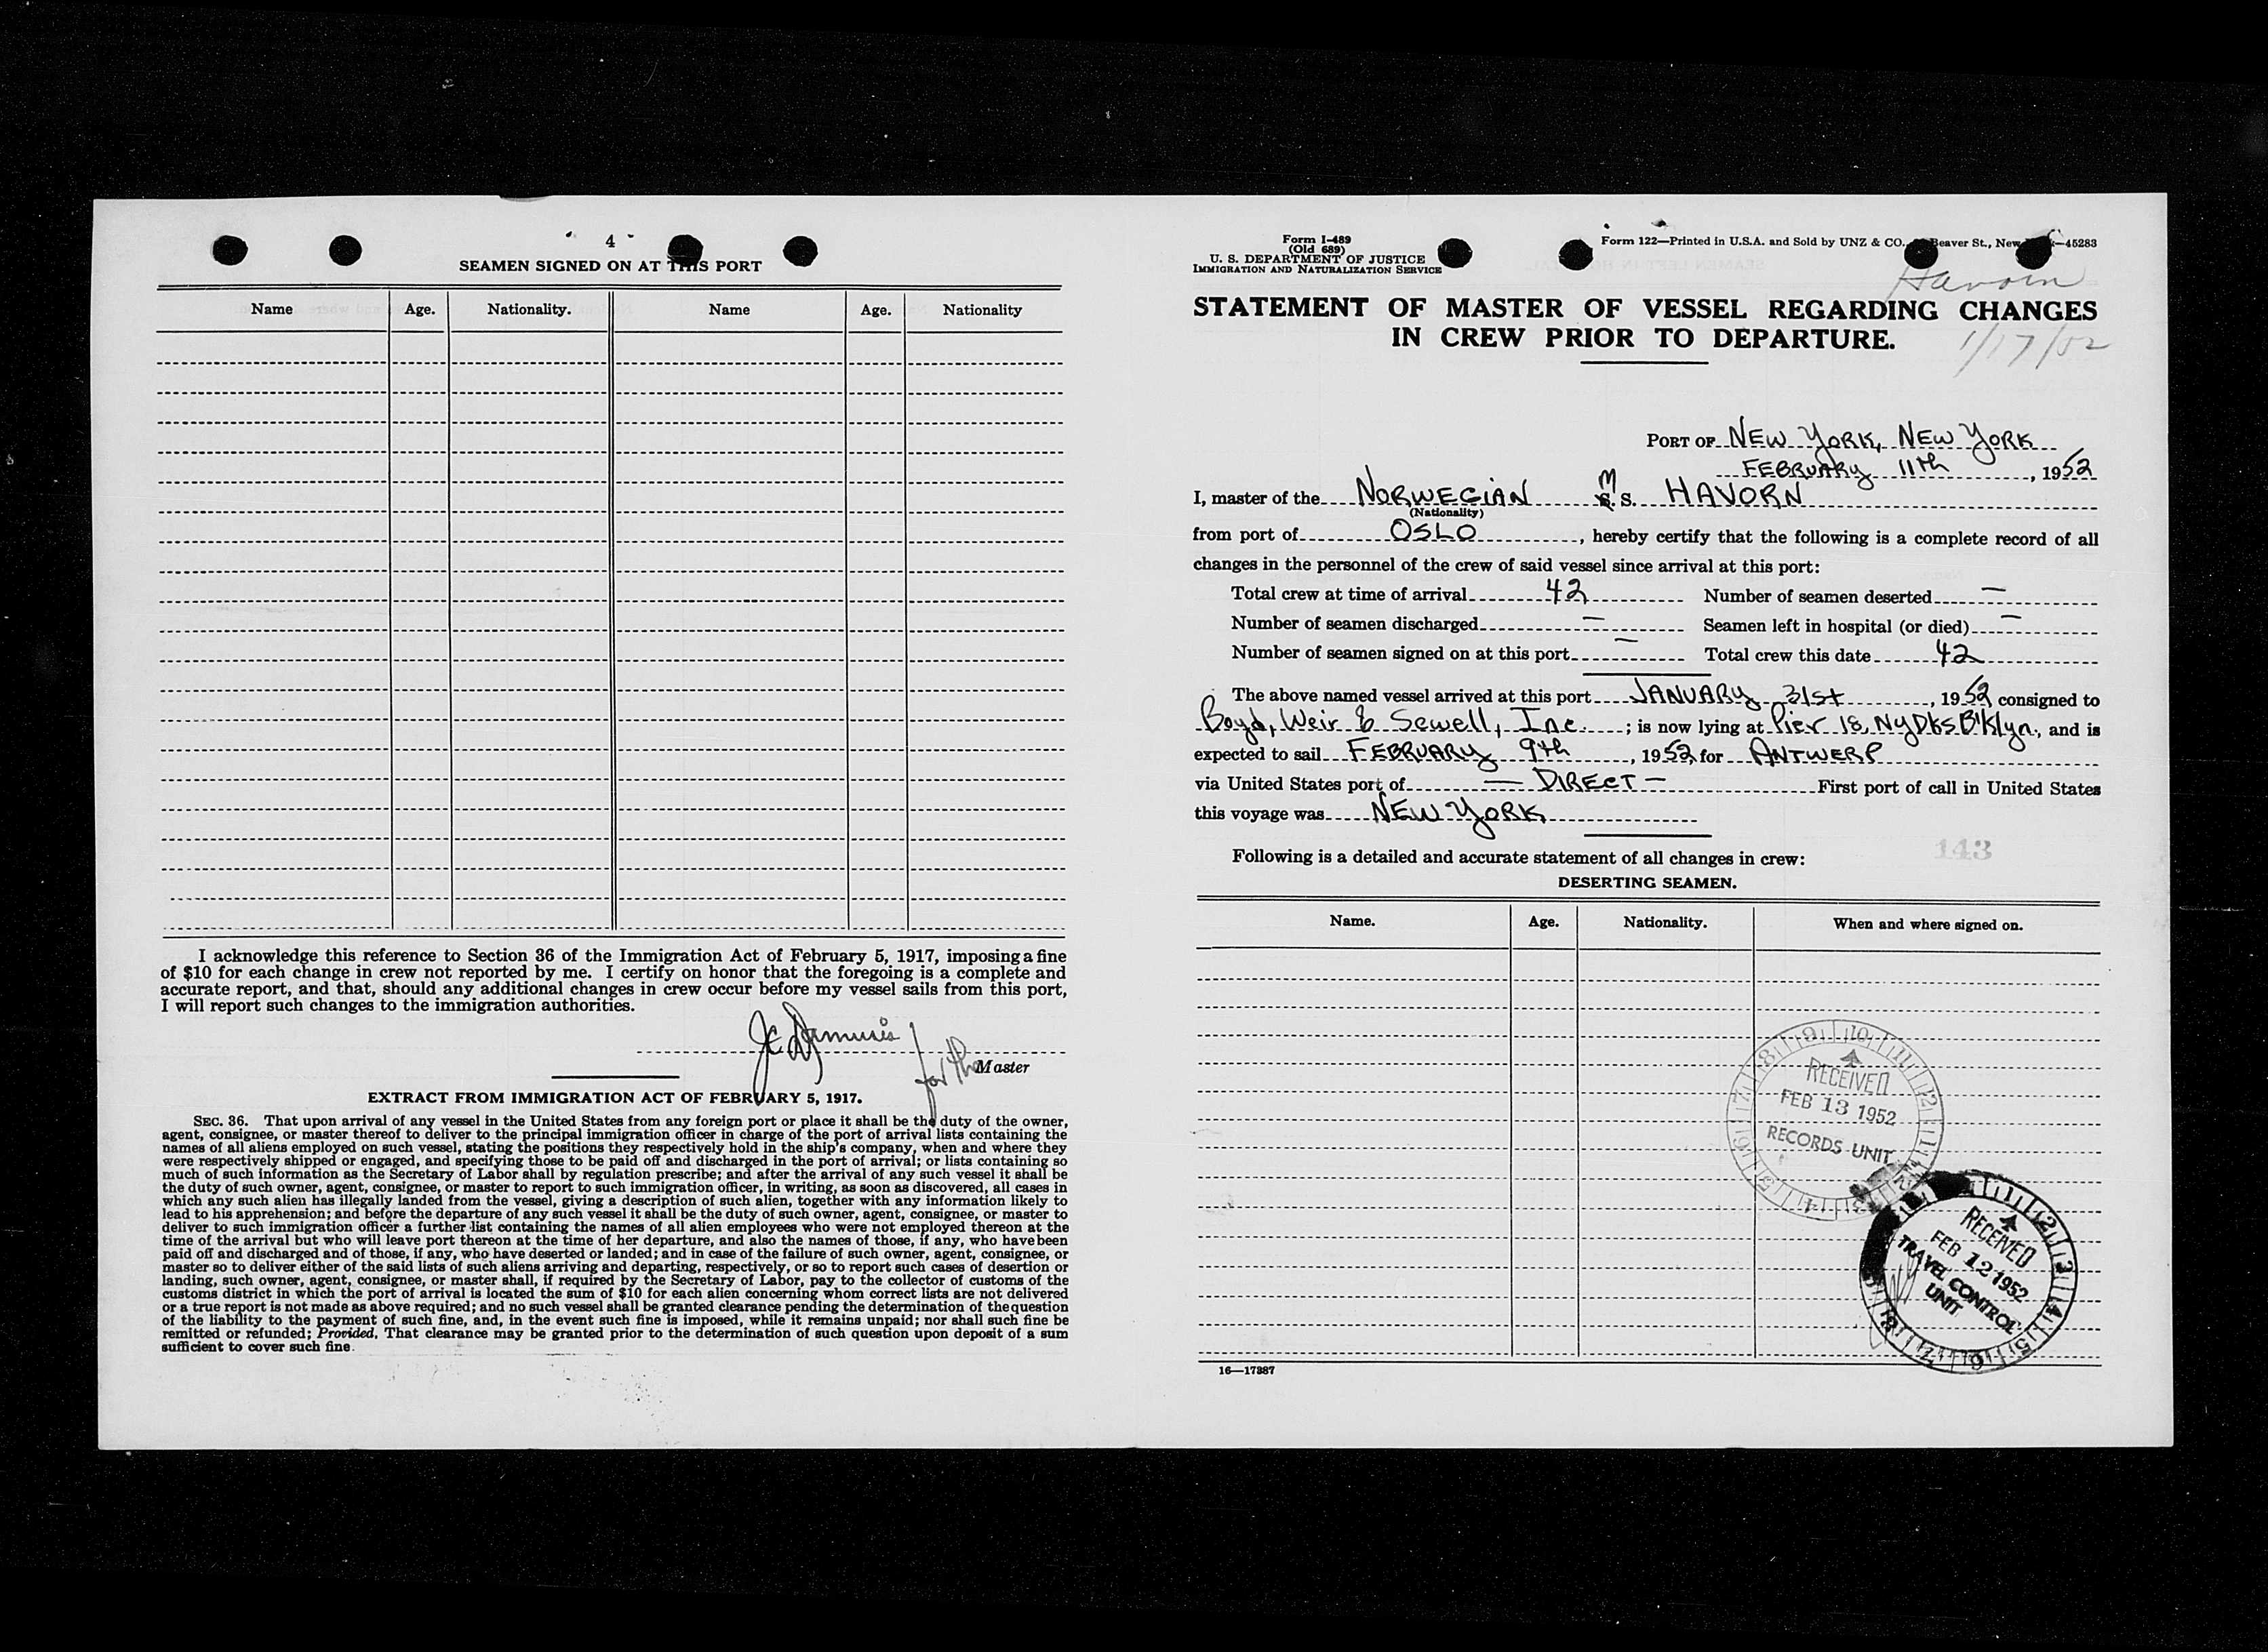 4
SEAMEN SIGNED ON AT THIS PORT
Name Age. Nationality. Name Age. Nationality
I acknowledge this reference to Section 36 of the Immigration Act of February 5, 1917, imposing a fine
of $10 for each change in crew not reported by me. I certify on honor that the foregoing is a complete and
accurate report, and that, should any additional changes in crew occur before my vessel sails from this port,
I will report such changes to the immigration authorities.
for the Master
EXTRACT FROM IMMIGRATION ACT OF FEBRUARY 5, 1917.
SEC. 36. That upon arrival of any vessel in the United States from any foreign port or place it shall be the duty of the owner,
agent, consignee, or master thereof to deliver to the principal immigration officer in charge of the port of arrival lists containing the
names of all aliens employed on such vessel, stating the positions they respectively hold in the ship's company, when and where they
were respectively shipped or engaged, and specifying those to be paid off and discharged in the port of arrival; or lists containing so
much of such information as the Secretary of Labor shall by regulation prescribe; and after the arrival of any such vessel it shall be
the duty of such owner, agent, consignee, or master to report to such immigration officer, in writing, as soon as discovered, all cases in
which any such alien has illegally landed from the vessel, giving a description of such alien, together with any information likely to
lead to his apprehension; and before the departure of any such vessel it shall be the duty of such owner, agent, consignee, or master to
deliver to such immigration officer a further list containing the names of all alien employees who were not employed thereon at the
time of the arrival but who will leave port thereon at the time of her departure, and also the names of those, if any, who have been
paid off and discharged and of those, if any, who have deserted or landed; and in case of the failure of such owner, agent, consignee, or
master so to deliver either of the said lists of such aliens arriving and departing, respectively, or so to report such cases of desertion or
landing, such owner, agent, consignee, or master shall, if required by the Secretary of Labor, pay to the collector of customs of the
customs district in which the port of arrival is located the sum of $10 for each alien concerning whom correct lists are not delivered
or a true report is not made as above required; and no such vessel shall be granted clearance pending the determination of the question
of the liability to the payment of such fine, and, in the event such fine is imposed, while it remains unpaid; nor shall such fine be
remitted or refunded; Provided, That clearance may be granted prior to the determination of such question upon deposit of a sum
sufficient to cover such fine.
Form I-489
(Old 689)
U. S. DEPARTMENT OF JUSTICE
IMMIGRATION AND NATURALIZATION SERVICE
Form 122—Printed in U.S.A. and Sold by UNZ & CO., Beaver St., New —45283
Havorn
STATEMENT OF MASTER OF VESSEL REGARDING CHANGES
IN CREW PRIOR TO DEPARTURE.
1/17/52
PORT OF NEW YORK, NEW YORK
FEBRUARY 11th, 1952
I, master of the NORWEGIAN M. S. HAVORN
(Nationality)
from port of OSLO, hereby certify that the following is a complete record of all
changes in the personnel of the crew of said vessel since arrival at this port:
Total crew at time of arrival 42 Number of seamen deserted —
Number of seamen discharged — Seamen left in hospital (or died) —
Number of seamen signed on at this port — Total crew this date 42
The above named vessel arrived at this port JANUARY 31st, 1952 consigned to
Boyd, Weir & Sewell, Inc.; is now lying at Pier 18, NyDksB'klyn, and is
expected to sail FEBRUARY 9th, 1952 for ANTWERP
via United States port of — DIRECT — First port of call in United States
this voyage was NEW YORK
Following is a detailed and accurate statement of all changes in crew:
143
DESERTING SEAMEN.
Name. Age. Nationality. When and where signed on.
RECEIVED
FEB 13 1952
RECORDS UNIT
RECEIVED
FEB 12 1952
TRAVEL CONTROL
UNIT
16—17387